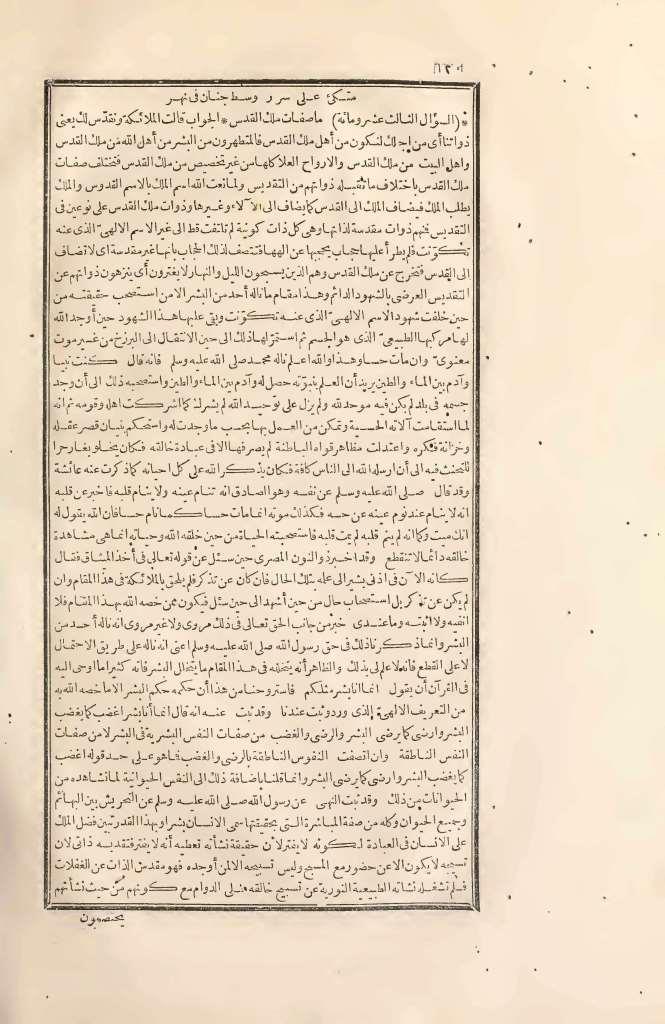 ١٢٩
متكئ على سرر وسط جنان فى نهر
*(السؤال الثالث عشر ومائة) ما صفات ملك القدس * الجواب قالت الملائكة ونقدّس لك يعنى
ذواتنا أى من اجلك لنكون من أهل ملك القدس فالمتطهرون من البشر من أهل الله من ملك القدس
واهل البيت من ملك القدس والارواح العلا كلها من غير تخصيص من ملك القدس فتختلف صفات
ملك القدس باختلاف ما تقبله ذواتهم من التقديس ولما نعت الله اسم الملك بالاسم القدوس والملك
يطلب الملك فيضاف الملك الى القدس كما يضاف الى الآلاء وغيرها وذوات ملك القدس على نوعين فى
التقديس فمنهم ذوات مقدسة لذاتها وهى كل ذات كونية لم تلتفت قط الى غير الاسم الالهىّ الذى عنه
تكوّنت فلم يطرأ عليها حجاب يحجبها عن الهها فتتصف لذلك الحجاب بانها غير مقدسة اى لا تضاف
الى القدس فتخرج عن ملك القدس وهم الذين يسبحون الليل والنهار لا يفترون أى ينزهون ذواتهم عن
التقديس العرضى بالشهود الدائم وهذا مقام ما ناله أحد من البشر الا من استصحب حقيقته من
حين خلقت شهود الاسم الالهىّ الذى عنه تكوّنت وبقى عليها هذا الشهود حين أوجد الله
لها مركبها الطبيعىّ الذى هو الجسم ثم استمرّ لها ذلك الى حين الانتقال الى البرزخ من غير موت
معنوىّ وان مات حسا وهذا والله اعلم ناله محمد صلى الله عليه وسلم فانه قال كنت نبيا
وآدم بين الماء والطين يريد أن العلم بنبوّته حصل له وآدم بين الماء والطين واستصحبه ذلك الى أن وجد
جسمه فى بلد لم يكن فيه موحد لله ولم يزل على توحيد الله لم يشرك كما اشركت اهله وقومه ثم انه
لما استقامت آلاته الحسية وتمكن من العمل بها بحسب ما وجدت له واستحكم بنيان قصر عقله
وخزانة فكره واعتدلت مظاهر قواه الباطنة لم يصرفها الا فى عبادة خالقه فكان يخلو بغار حرا
للتحنث فيه الى أن ارسله الله الى الناس كافة فكان يذكر الله على كل احيانه كما ذكرت عنه عائشة
وقد قال صلى الله عليه وسلم عن نفسه وهو الصادق انه تنام عينه ولا ينام قلبه فاخبر عن قلبه
انه لا ينام عند نوم عينه عن حسه فكذلك موته انما مات حسا كما نام حسا فان الله يقول له
انك ميت وكما انه لم ينم قلبه لم يمت قلبه فاستصحبته الحياة من حين خلقه الله وحياته انما هى مشاهدة
خالقه دائما لا تنقطع وقد اخبر ذو النون المصرى حين سئل عن قوله تعالى فى أخذ الميثاق فقال
كانه الآن فى اذنى يشير الى علمه بتلك الحال فان كان عن تذكر فلم يلحق بالملائكة فى هذا المقام وان
لم يكن عن تذكر بل استصحاب حال من حين أشهد الى حين سئل فيكون ممن خصه الله بهذا المقام فلا
انفيه ولا اثبته وما عندى خبر من جانب الحق تعالى فى ذلك مروى ولا غير مروى انه ناله أحد من
البشر وانما ذكرنا ذلك فى حق رسول الله صلى الله عليه وسلم اعنى انه ناله على طريق الاحتمال
لا على القطع فانه لا علم لى بذلك والظاهر أنه يتخلله فى هذا المقام ما يتخلل البشر فانه كثيرا ما اوحى اليه
فى القرآن أن يقول انما انا بشر مثلكم فاستروحنا من هذا أن حكمه حكم البشر الا ما خصه الله به
من التعريف الالهىّ الذى ورد وثبت عندنا وقد ثبت عنه انه قال انما أنا بشر اغضب كما يغضب
البشر وارضى كما يرضى البشر والرضى والغضب من صفات النفس البشرية فى البشر لا من صفات
النفس الناطقة وان اتصفت النفوس الناطقة بالرضى والغضب فما هو على حد قوله اغضب
كما يغضب البشر وارضى كما يرضى البشر وانما قلنا باضافة ذلك الى النفس الحيوانية لما نشاهده من
الحيوانات من ذلك وقد ثبت النهى عن رسول الله صلى الله عليه وسلم عن التحريش بين البهائم
وجميع الحيوان وكله من صفة المباشرة التى بحقيقتها سمى الانسان بشرا وبهذا القدر تبين فضل الملك
على الانسان فى العبادة لكونه لا يفتر لأن حقيقة نشأته تعطيه أنه لا يفتر فتقديسه ذاتى لان
تسبيحه لا يكون الا عن حضور مع المسبح وليس تسبيحه الا لمن أوجده فهو مقدس الذات عن الغفلات
فلم تشغله نشأته الطبيعية النورية عن تسبيح خالقه على الدوام مع كونهم من حيث نشأتهم
يختصمون